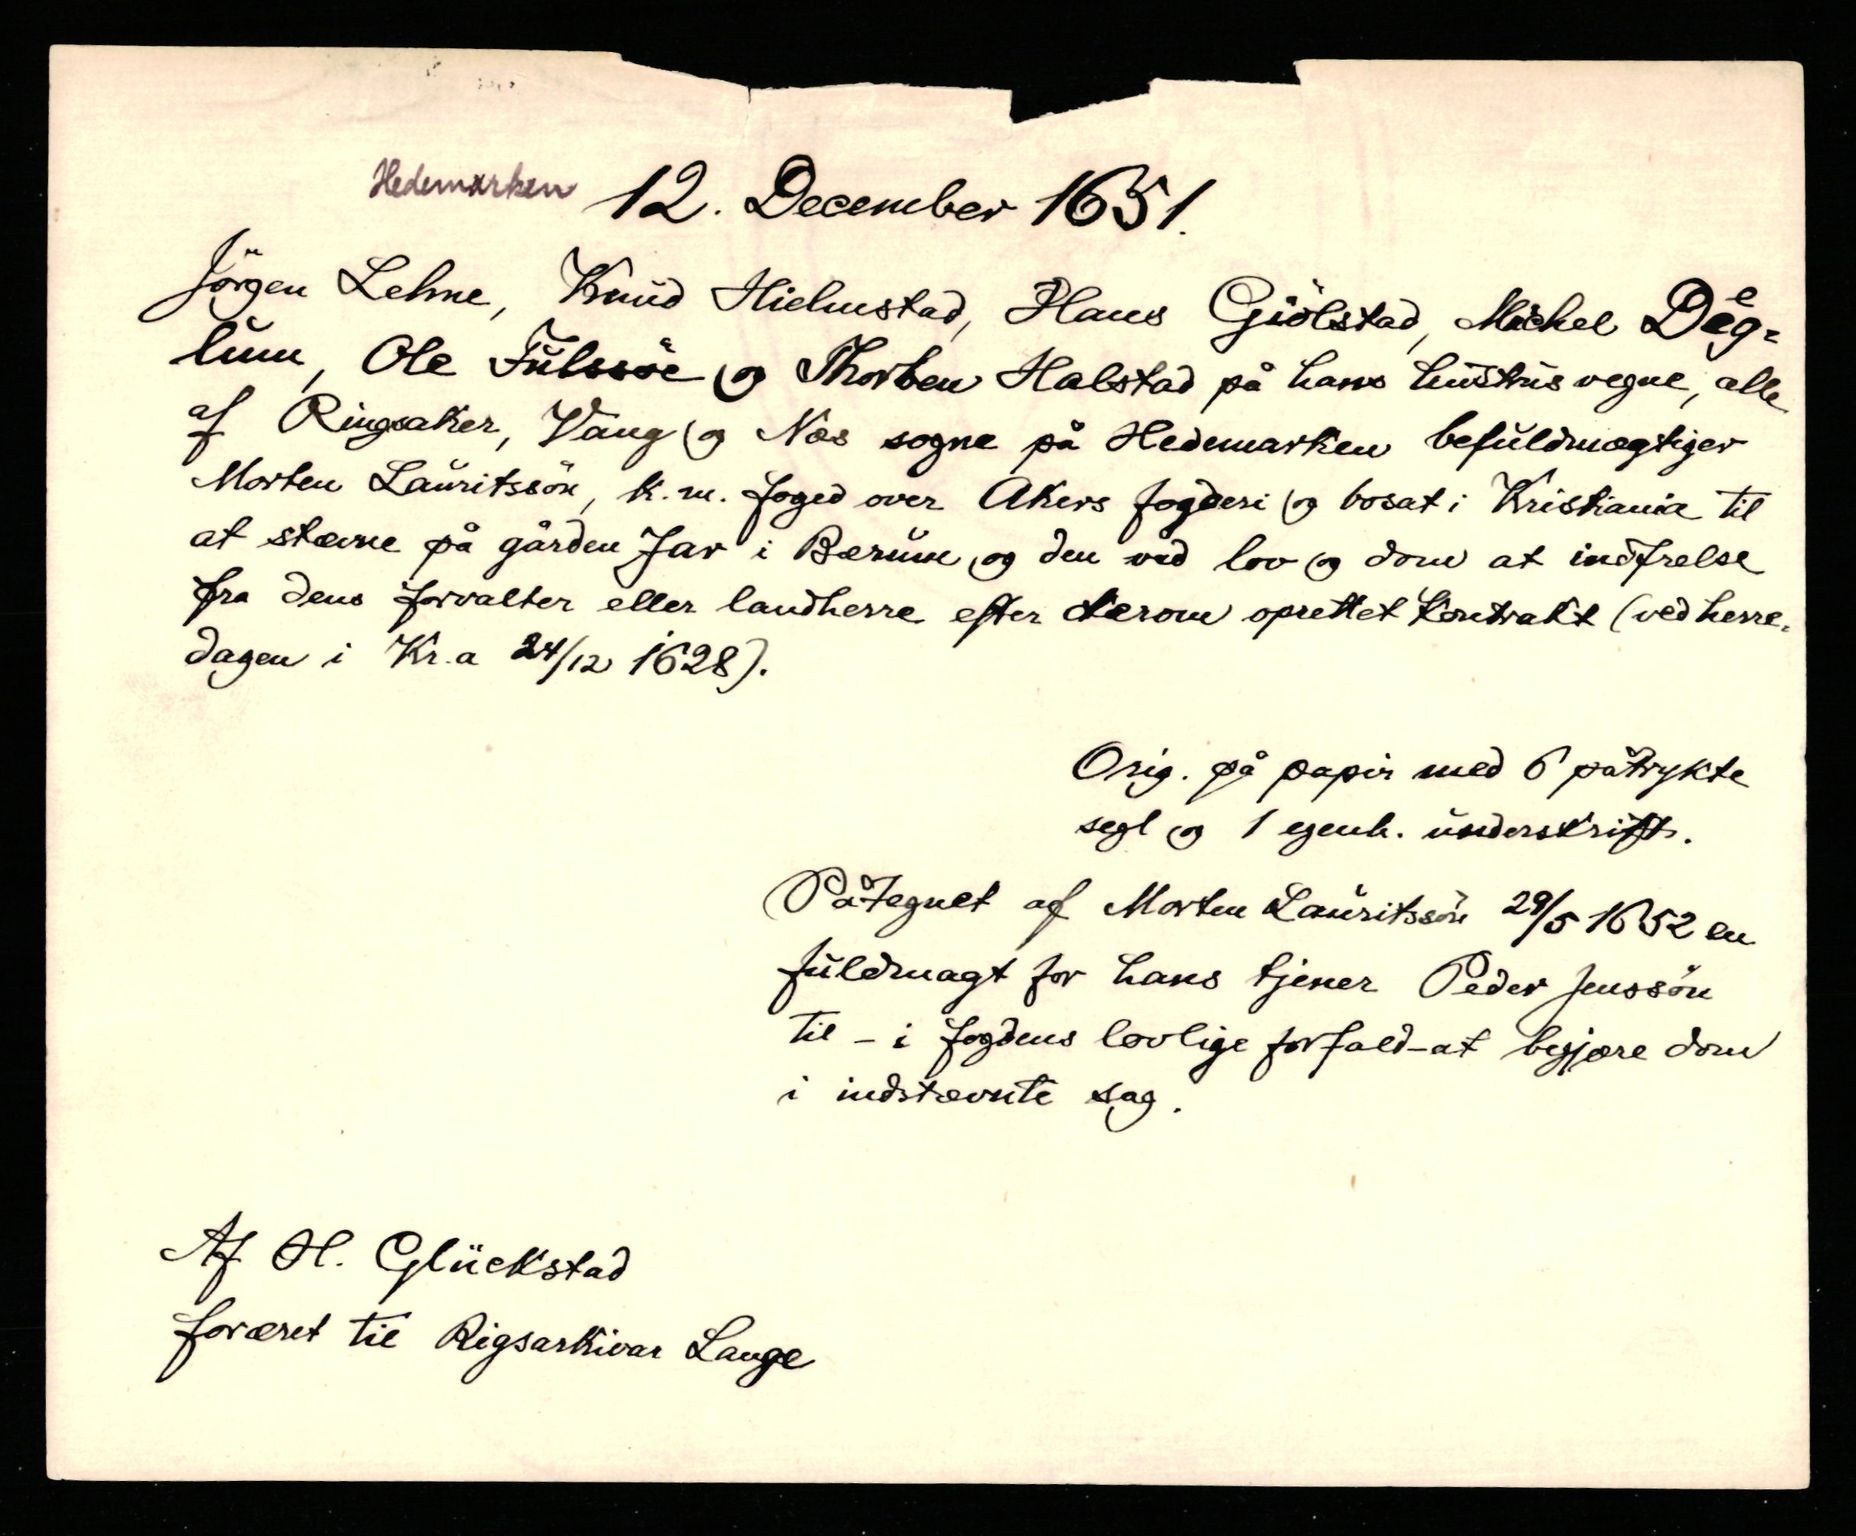 Hedemarken 12. December 1651.
Jörgen Lehne, Knud Hielmstad, Hans Giölstad, Michel Deg-
lum, Ole Fulssöe og Thorben Halstad på hans hustrus vegne, alle
af Ringsaker, Vang og Næs sogne på Hedemarken befuldmægtiger
Morten Lauritssön, k. m. foged over Akers fogderi og bosat i Kristiania til
at stævne på gården Jar i Bærum og den ved lov og dom at indfrelse
fra dens forvalter eller landherre efter derom oprettet kontrakt (ved herre-
dagen i Kr.a 24/12 1628).
Orig. på papir med 6 påtrykte
segl og 1 egenh. underskrift.
Påtegnet af Morten Lauritssön 29/5 1652 en
fuldmagt for hans tjener Peder Jenssön
til - i fogdens lovlige forfald - at begjære dom
i indstævnte sag.
Af H. Glückstad
foræret til Rigsarkivar Lange